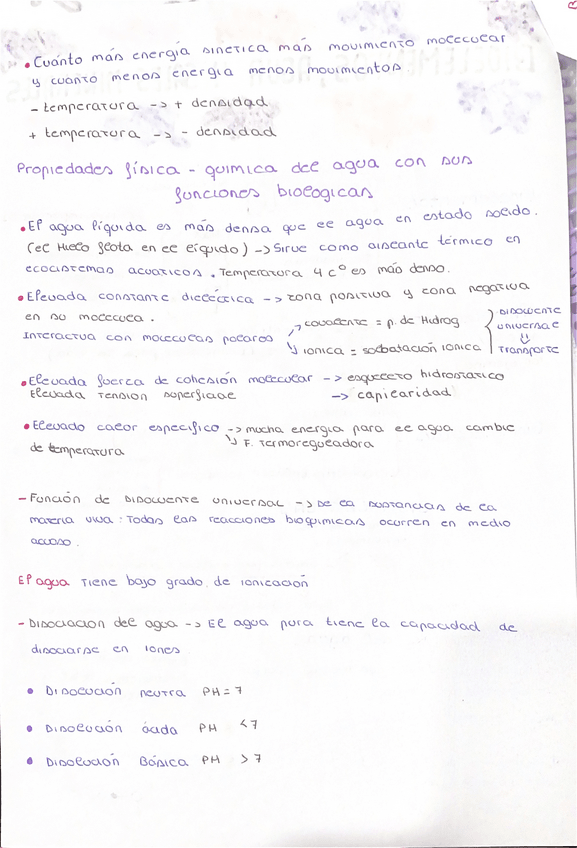 • Cuánto más energía sinetica más movimiento molecular
y cuanto menos energia menos movimientos
- temperatura -> + densidad
+ temperatura -> - densidad
Propiedades física - quimica del agua con sus
funciones biologicas
• El agua líquida es más densa que el agua en estado solido.
(el Hielo flota en el líquido) -> Sirve como aislante térmico en
ecosistemas acuaticos. Temperatura 4 Cº es más denso.
• Elevada constante dieléctrica -> zona positiva y zona negativa
en su molecula.
Interactua con moleculas polares
covalente = p. de Hidrog
ionica = solbatación ionica
Disolvente
universal
⇓
Transporte
• Elevada fuerza de cohesión molecular -> esqueleto hidrostatico
Elevada Tension superficial -> capilaridad
• Elevado calor especifico -> mucha energia para el agua cambie
de temperatura
F. Termoreguladora
- Función de Disolvente universal -> De la sustancias de la
materia viva: Todas las reacciones bioquimicas ocurren en medio
acuoso.
El agua Tiene bajo grado de ionicación
- Disociacion del agua -> El agua pura tiene la capacidad de
disociarse en iones
• Disolución neutra PH = 7
• Disolución ácida PH < 7
• Disolución Básica PH > 7